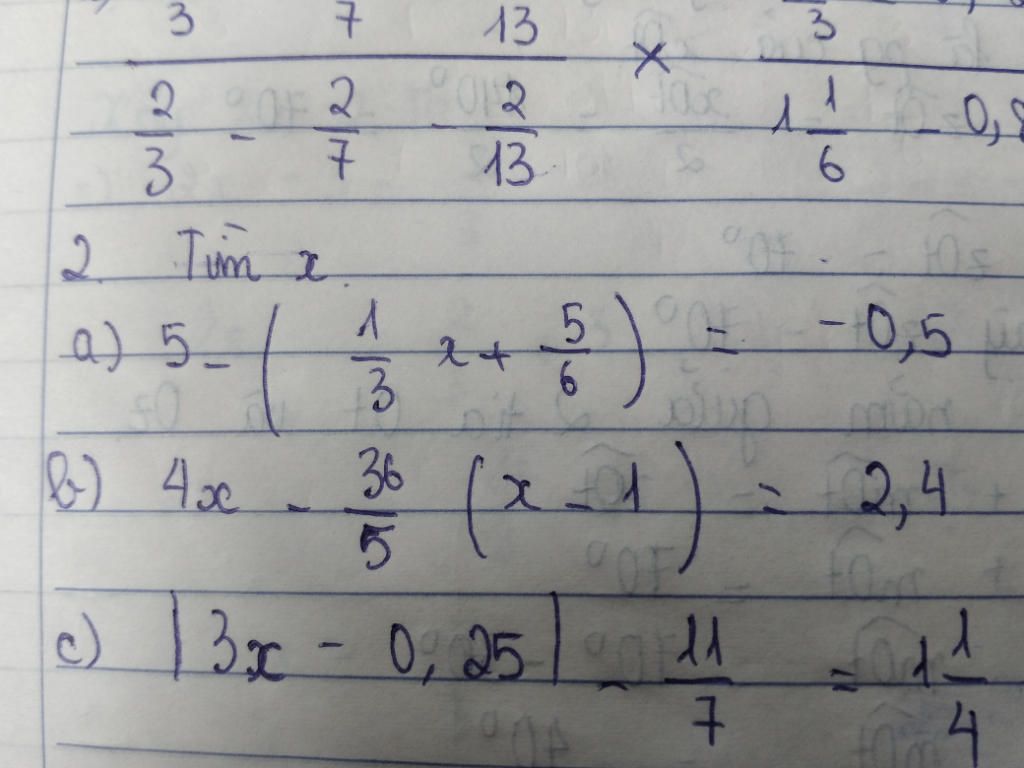 3 7 13 3
× 
2/3 - 2/7 - 2/13 1 1/6 - 0,8
2. Tìm x.
a) 5 - ( 1/3 x + 5/6 ) = -0,5
b) 4x - 36/5 ( x - 1 ) = 2,4
c) | 3x - 0,25 | - 11/7 = 1 1/4